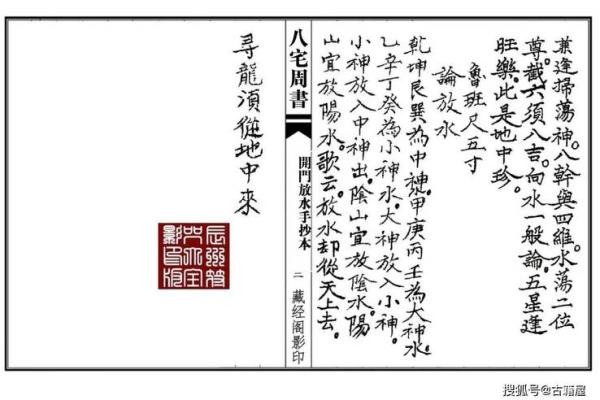 兼逢掃蕩神。八幹與四維。水蕩二位
尊。截六須八吉。向水一般論。五星逢
旺樂。此是地中珍。
魯班尺五寸
論放水
乾坤艮巽為中神。甲庚丙壬為大神水。
乙辛丁癸為小神水。大神放入小神。
小神放入中神出。陰山宜放陰水。陽
山宜放陽水。歌云。放水却從天上去。
八宅周書
開門放水手抄本
二
藏经阁影印
尋龍須從地中來
搜狐号@古籍屋